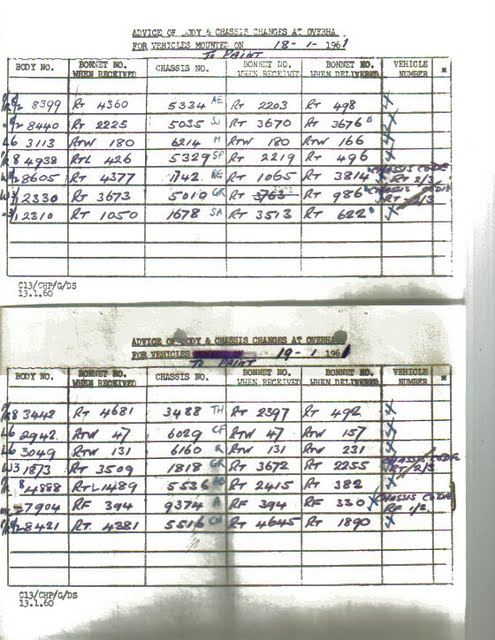 ADVICE OF BODY & CHASSIS CHANGES AT OVERHA
FOR VEHICLES MOUNTED ON 18-1-1961
To PAINT
BODY NO. BONNET NO. WHEN RECEIVED CHASSIS NO. BONNET NO. WHEN RECEIVED BONNET NO. WHEN DELIVERED VEHICLE NUMBER
8399 RT 4360 5334 AE RT 2203 RT 498 X
8440 RT 2225 5035 SJ RT 3670 RT 3676 X
L6 3113 RTW 180 6214 H RTW 180 RTW 166 X
8 4938 RTL 426 5329 SP RT 2219 RT 496 X
8605 RT 4377 1742 RT 1065 RT 3814 X CHASSIS CODE RT 2/3
W3 2330 RT 3673 5010 GR RT 3763 RT 986 X CHASSIS CODE RT 1/3
3/1 2310 RT 1050 1678 SA RT 3513 RT 622 X
C13/CHP/G/DS
13.1.60
ADVICE OF BODY & CHASSIS CHANGES AT OVERHA
FOR VEHICLES To PAINT 19-1-1961
BODY NO. BONNET NO. WHEN RECEIVED CHASSIS NO. BONNET NO. WHEN RECEIVED BONNET NO. WHEN DELIVERED VEHICLE NUMBER
8 3442 RT 4681 3488 TH RT 2397 RT 492 X
L6 2942 RTW 47 6029 CF RTW 47 RTW 157 X
L6 3049 RTW 131 6160 RTW 131 RTW 231 X
W3 1873 RT 3509 1818 GR RT 3672 RT 2255 X CHASSIS CODE RT 2/3
8 4888 RTL 1489 5536 RT 2415 RT 382 X
7904 RF 394 9374 A RF 394 RF 330 X CHASSIS CODE RF 1/2
8421 RT 4381 5516 RT 4645 RT 1890 X
C13/CHP/G/DS
13.1.60